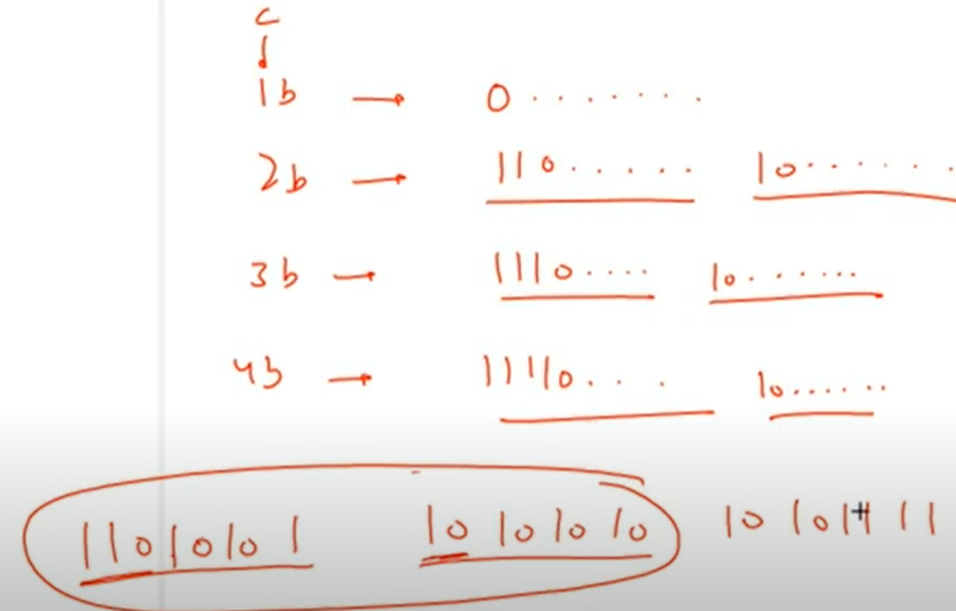 c
1b → 0.......
2b → 110...... 10......
3b → 1110.... 10.......
4b → 11110... 10......
11010101 10101010 10101111